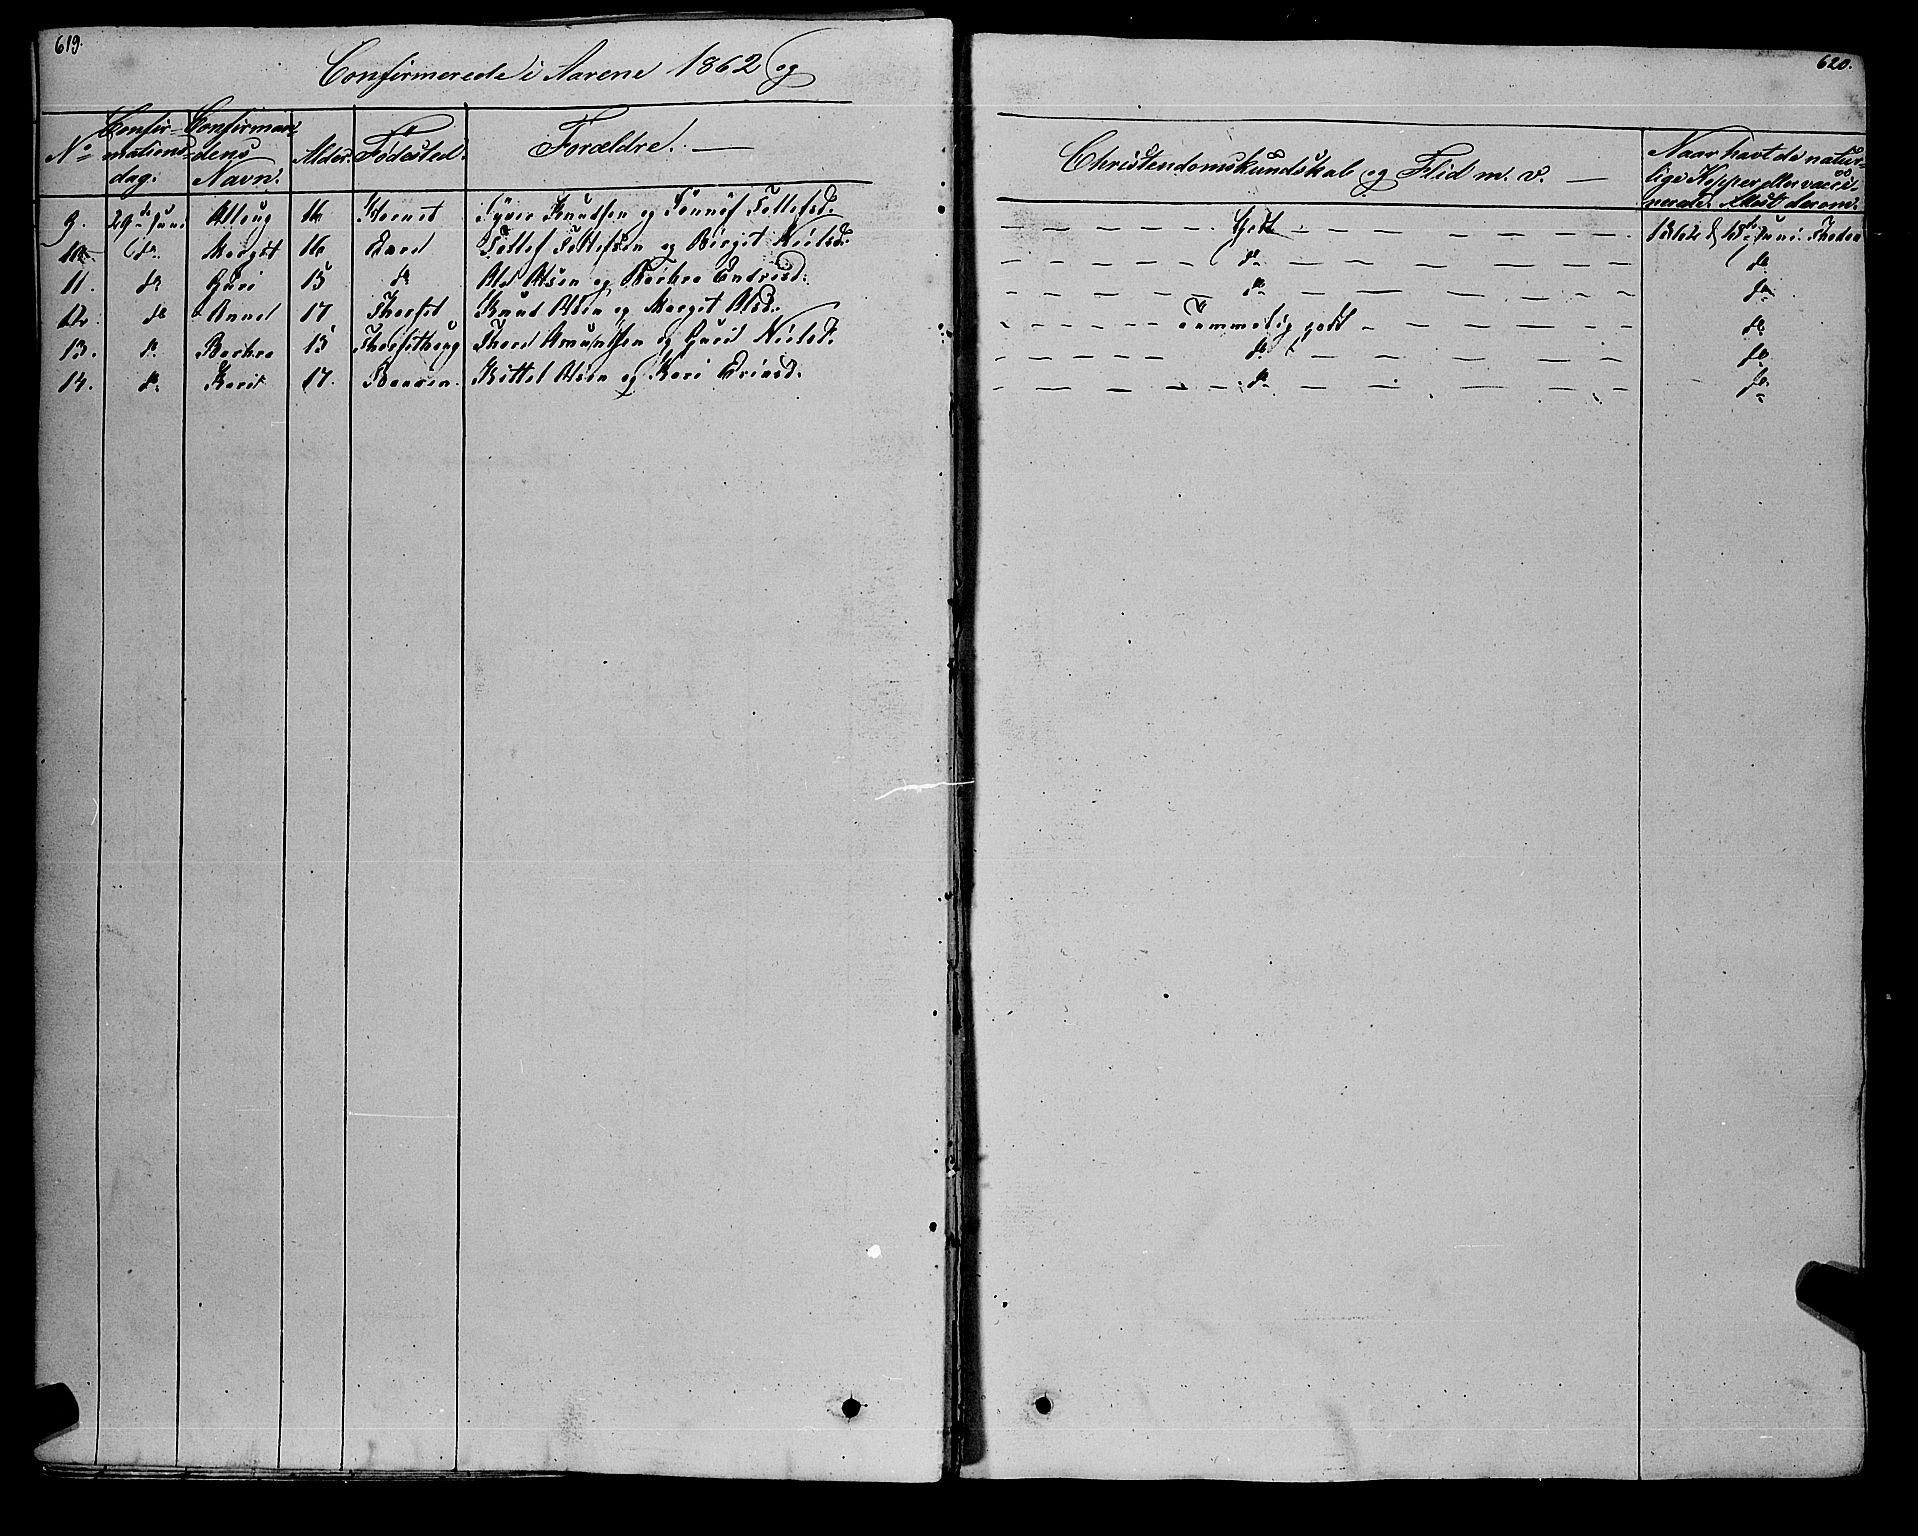 619.
Confirmerede i Aarene 1862 og
No Confirmationsdag. Confirmandens Navn. Alder. Fødested. Forældre. —
9. 29de Juni Aslaug 16 Knudsen og Tønnef Tellefsd.
10. do Margit 16 Tellef Tellefsen og Birgit Nielsd.
11. do Guri 15 do Ole Olsen og Berbro Endresd.
12. do Anne 17 Knud Olsen og Margit Olsd.
13. do Berbro 15 Amundsen og Guri Nielsd.
14. do Kari 17. Kittel Olsen og Kari
620.
Christendomskundskab og Flid m. v. — Naar havt de naturlige Kopper eller vaccineret samt Attest derom.
Godt 1862 d 15de Juni. Thedea
do do
do do
Temmelig godt do
do do
do do